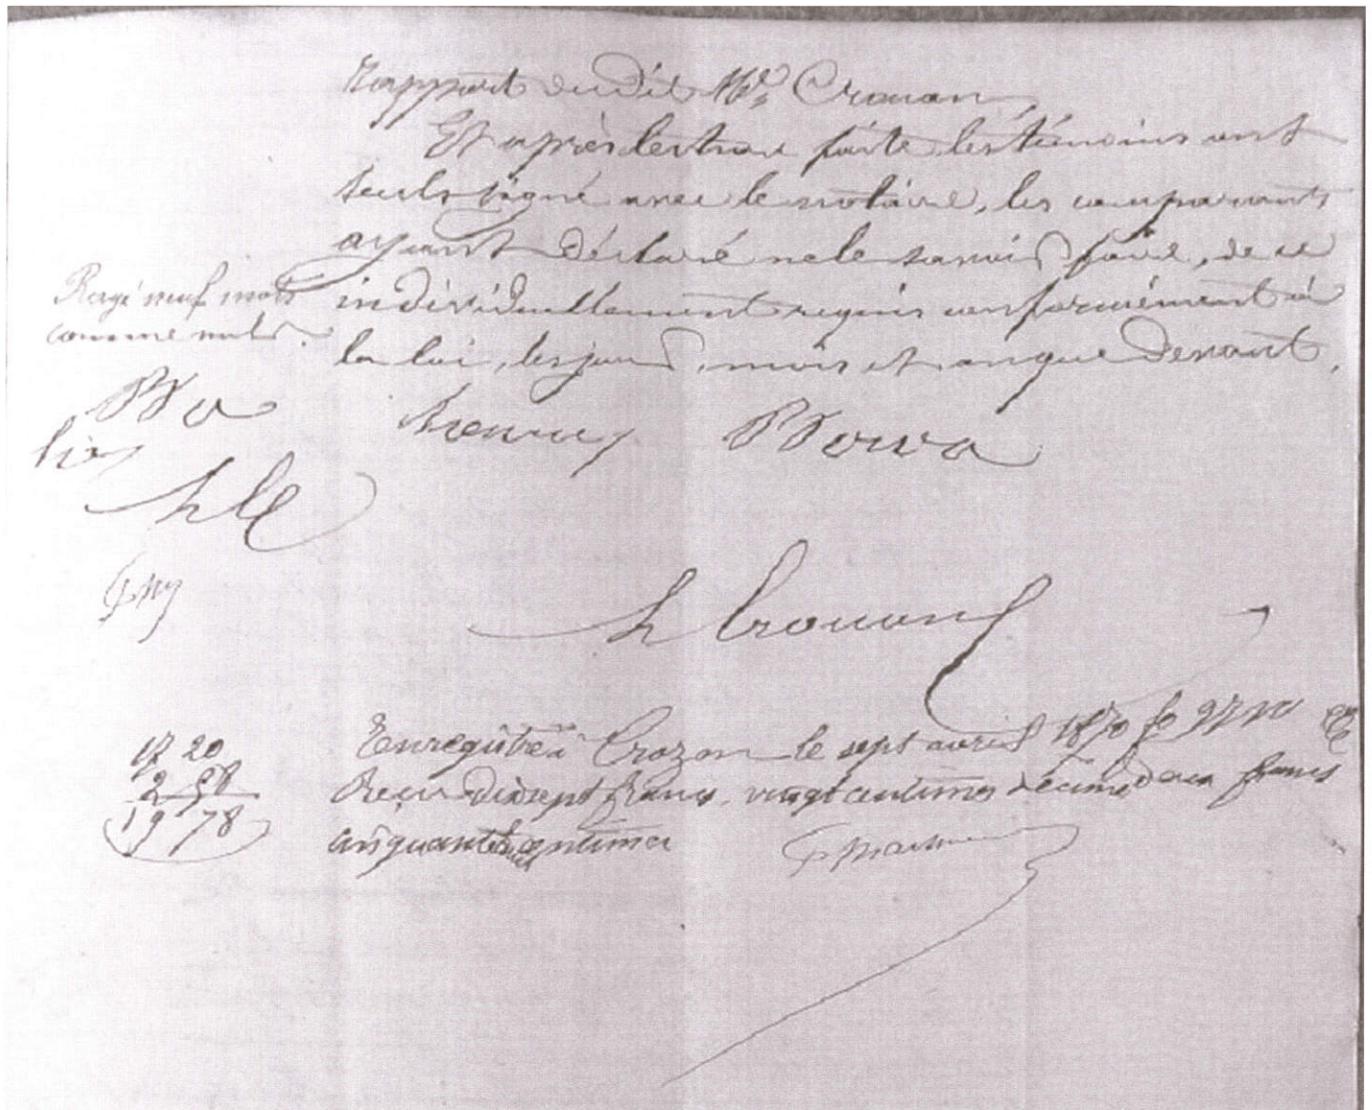 Rapport dudit Me Crouan
Et après lecture faite, les témoins ont
seuls signé avec le notaire, les comparants
ayant déclaré ne le savoir faire, de ce
individuellement requis conformément à
la loi, les jour, mois et an que devant.
Rayé neuf mots
comme nuls.
Bo
hle
Bowa
h Crouan
17 20
2 58
19 78
Enregistré à Crozon le sept avril 1870 fo 97
Reçu dix sept francs vingt centimes décime deux francs
cinquante huit centimes